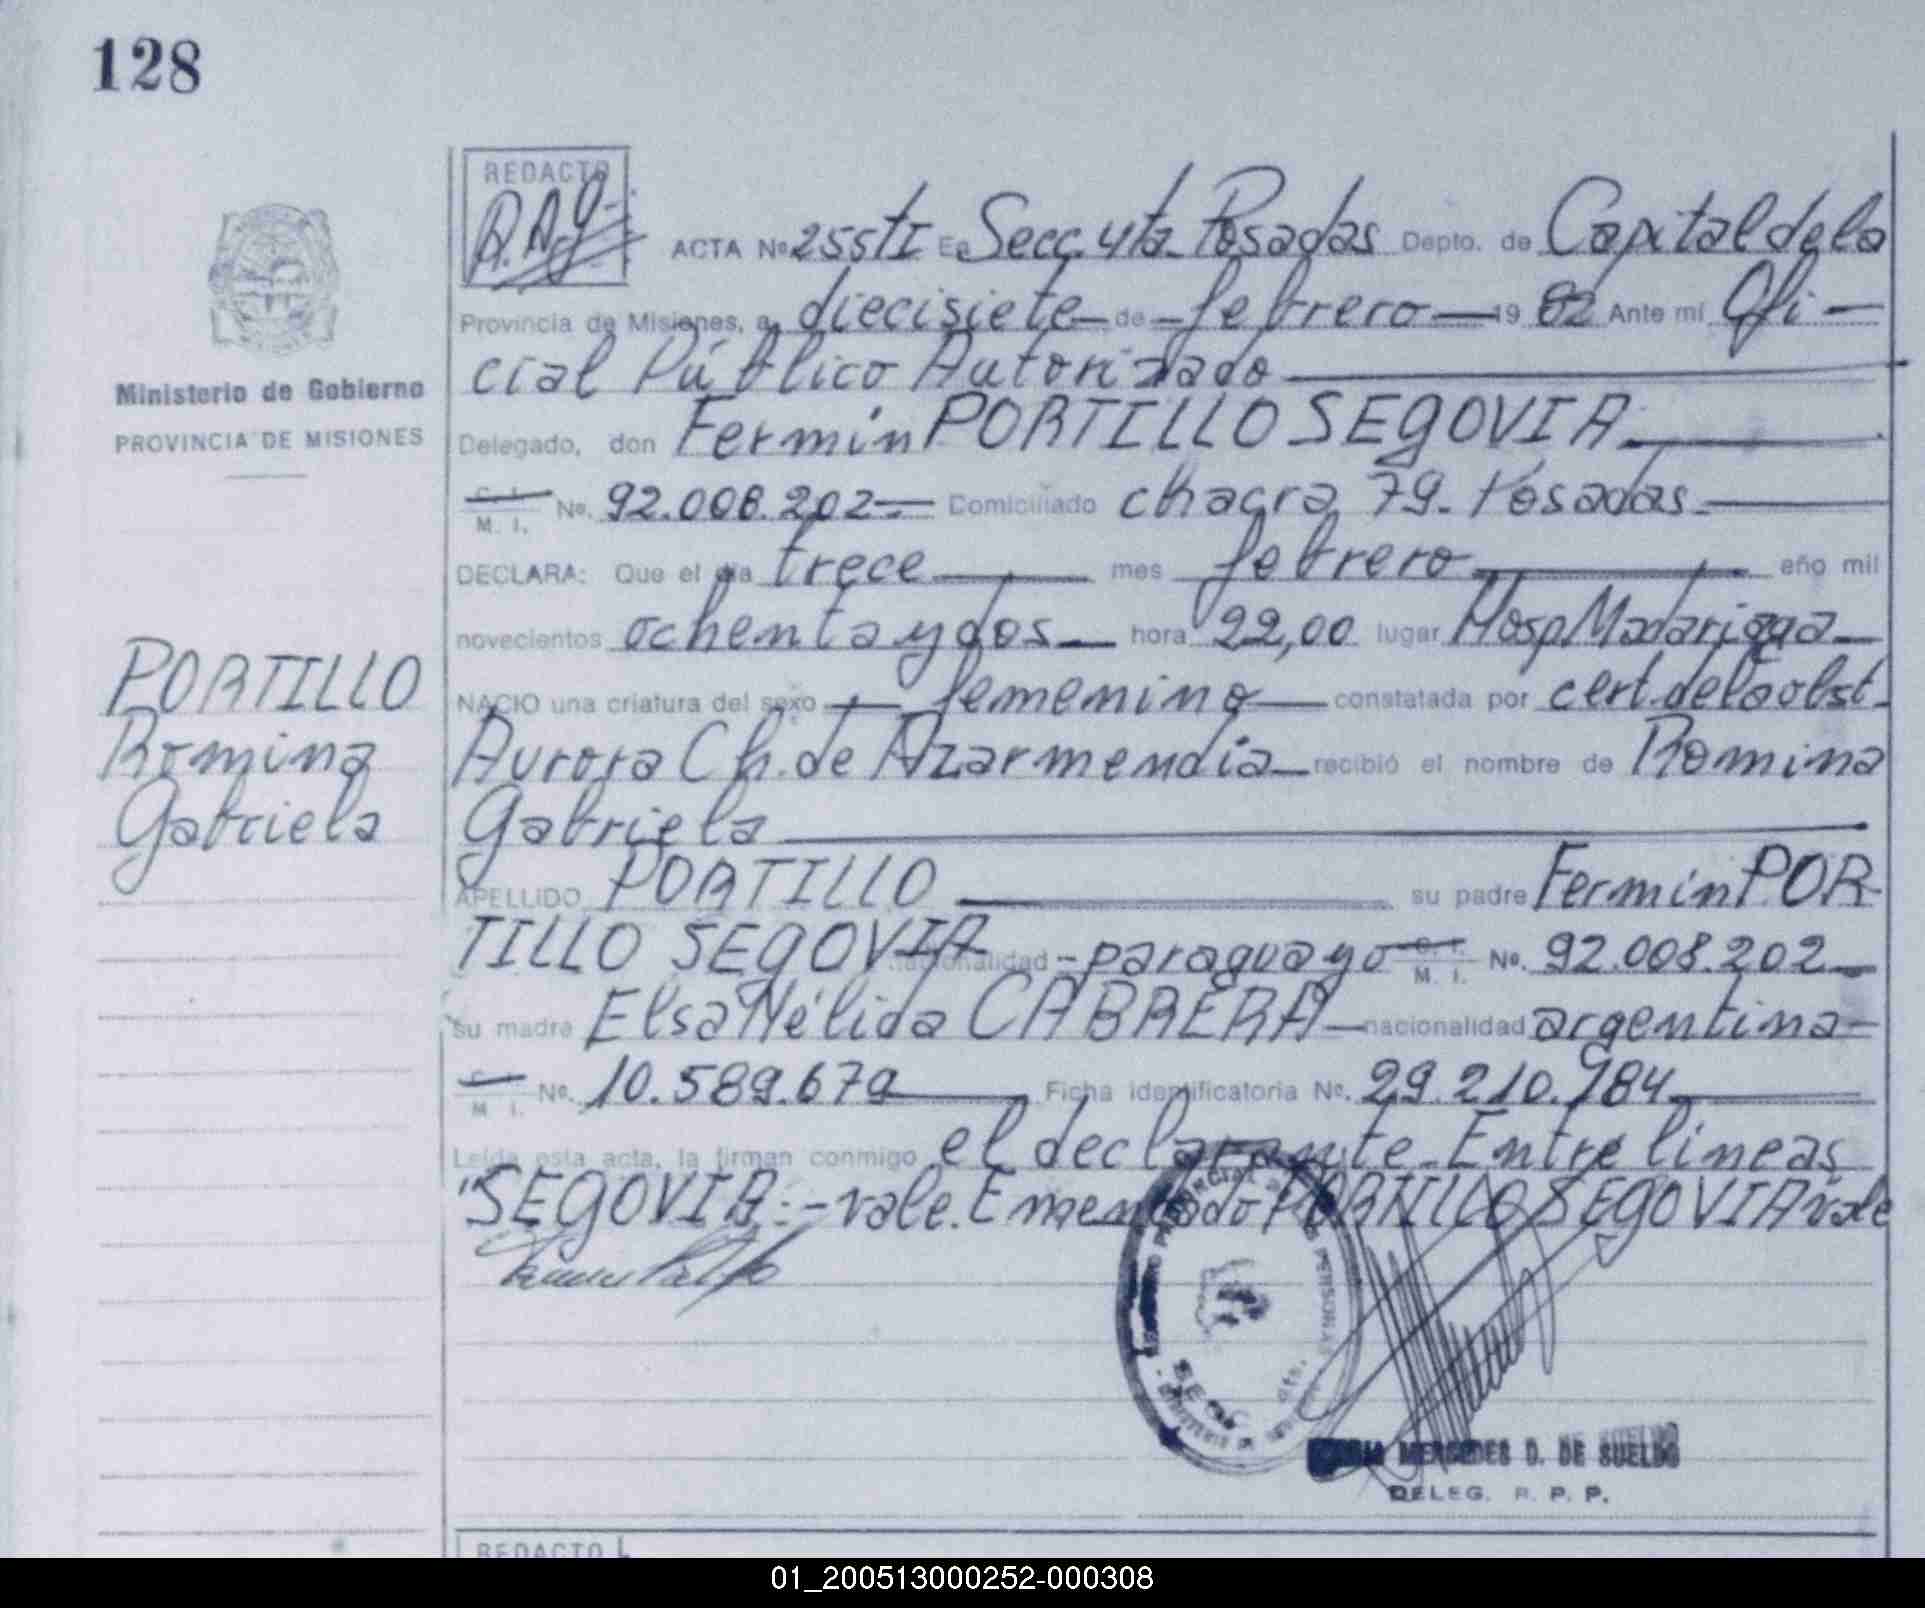 128
REDACTO
ACTA Nº 255 tI En Secc. 4ta. Posadas Depto. de Capital de la
Provincia de Misiones, a diecisiete de febrero 19 82 Ante mí Ofi-
cial Público Autorizado
Ministerio de Gobierno
PROVINCIA DE MISIONES
Delegado, don Fermin PORTILLO SEGOVIA
C. I.
M. I. Nº. 92.008.202 Domiciliado chacra 79. Posadas
DECLARA: Que el día trece mes febrero año mil
novecientos ochenta y dos hora 22,00 lugar Hosp Madariaga
PORTILLO
Romina
Gabriela
NACIO una criatura del sexo femenino constatada por cert. de la obst.
Aurora Ch. de Azarmendia recibió el nombre de Romina
Gabriela
APELLIDO PORTILLO su padre Fermin POR-
TILLO SEGOVIA nacionalidad paraguayo C. I.
M. I. Nº. 92.008.202
su madre Elsa Nélida CABRERA nacionalidad argentina
C. I.
M. I. Nº. 10.589.679 Ficha identificatoria Nº. 29.210.984
Leída esta acta, la firman conmigo el declarante. Entre lineas
"SEGOVIA:- vale. Enmendado PORTILLO SEGOVIA vale
MERCEDES D. DE SUELDO
DELEG. R. P. P.
REDACTO
01_200513000252-000308